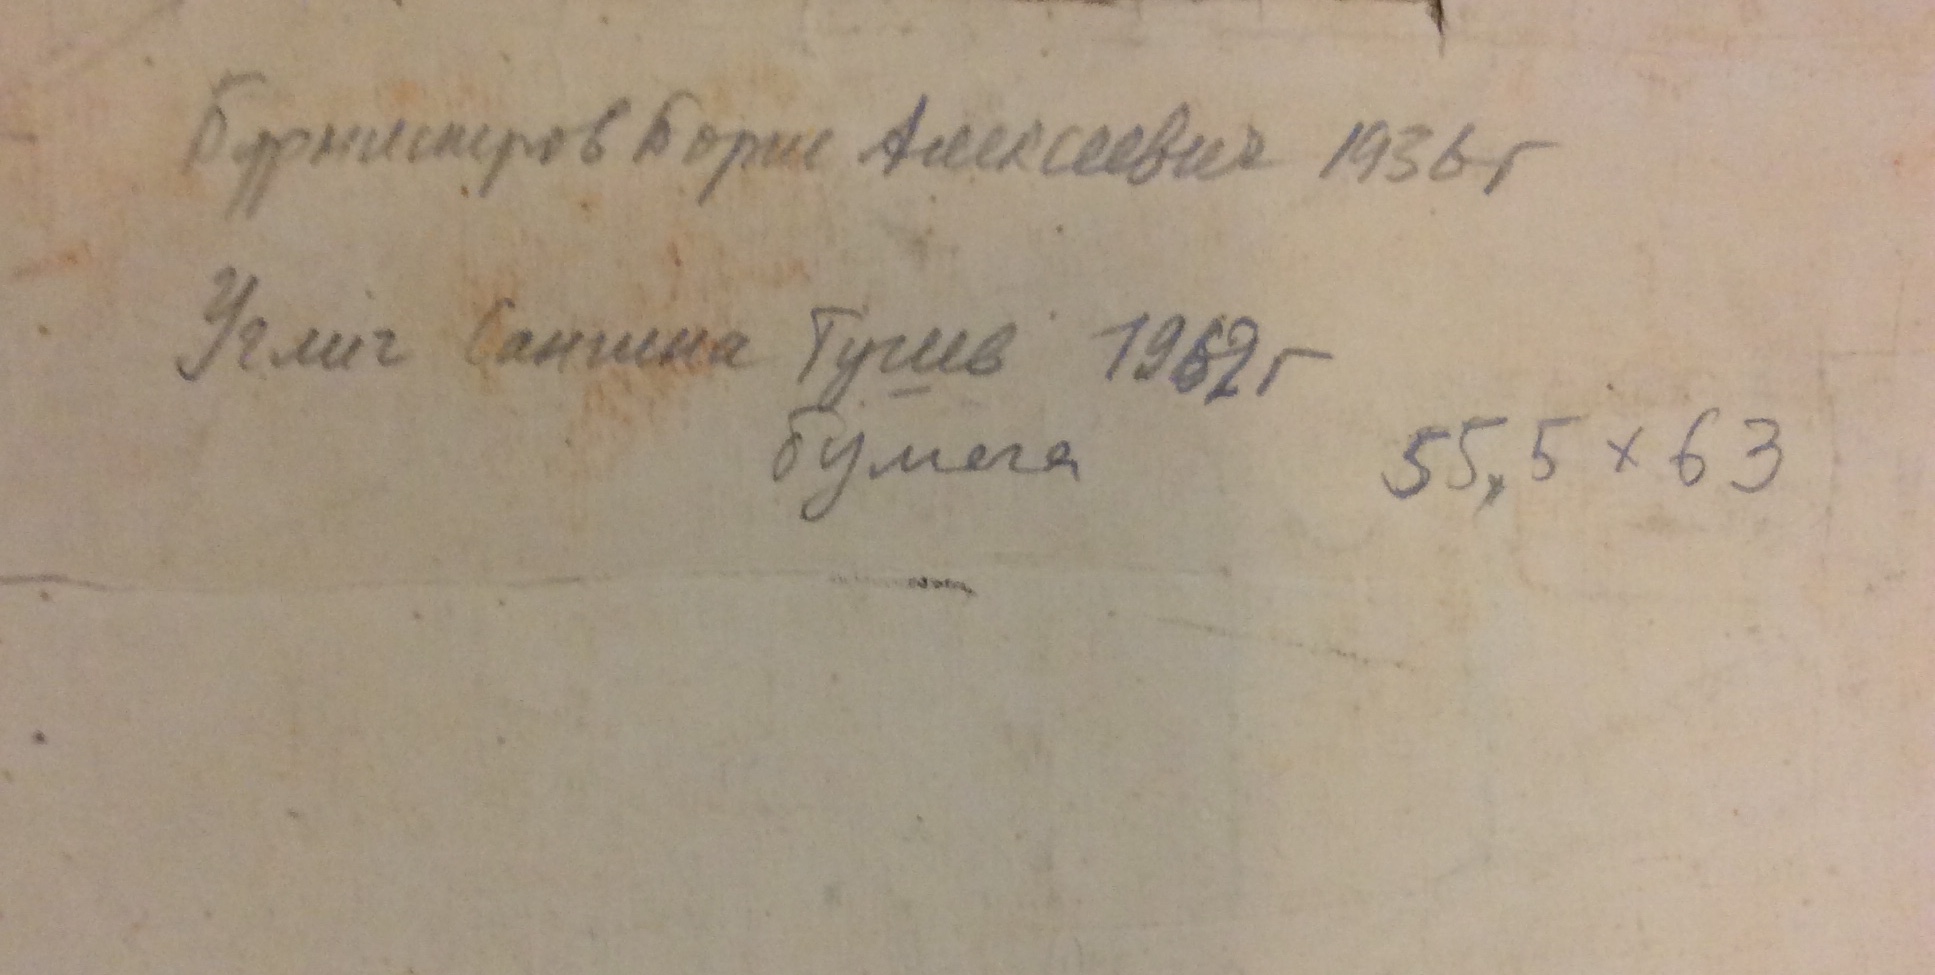 Бурмистров Борис Алексеевич 1936 г
Углич Сангина Тушь 1962 г
бумага 55,5 х 63